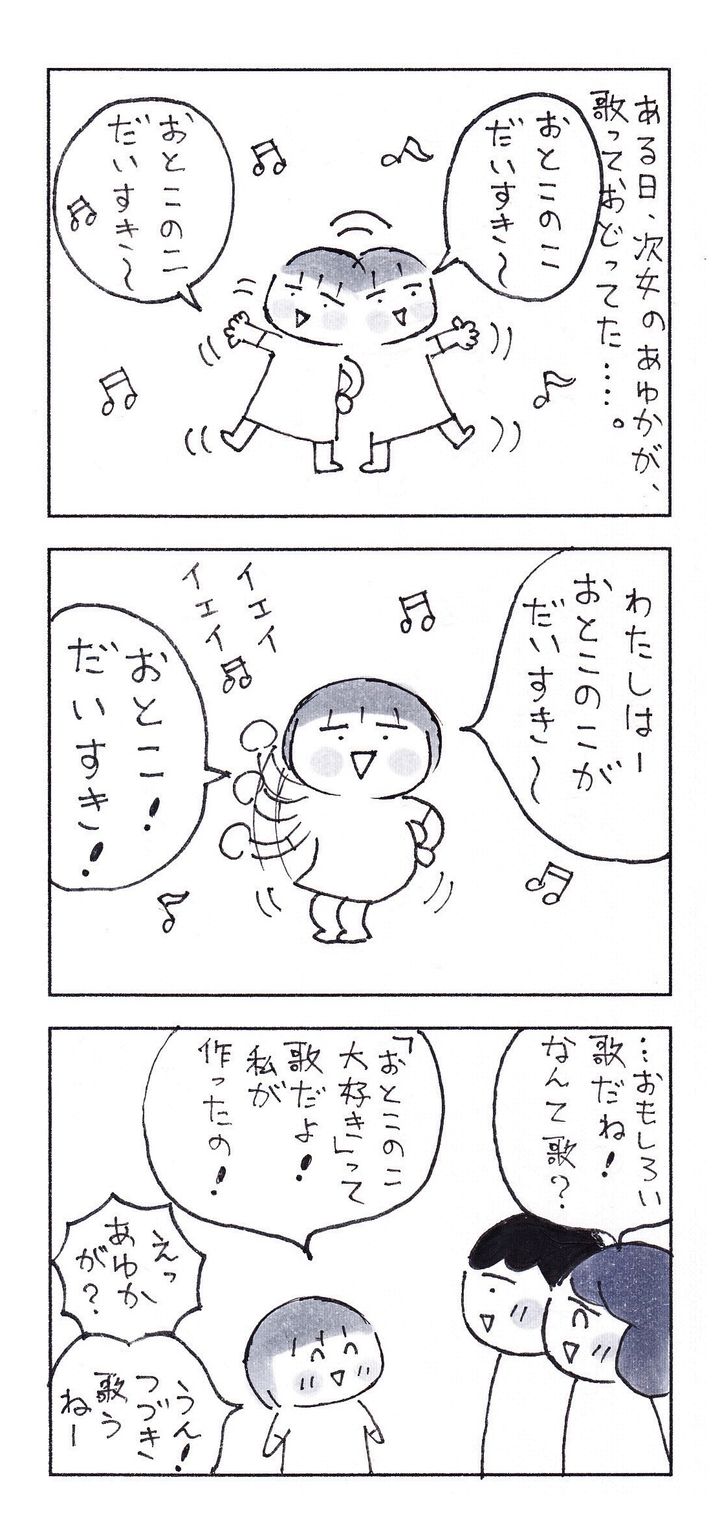 ある日、次女のあゆかが、
歌っておどってた‥‥。
おとこのこ
だいすき〜
おとこのこ
だいすき〜
わたしはー
おとこのこが
だいすき〜
イエイ
イエイ
おとこ!
だいすき!
…おもしろい
歌だね!
なんて歌?
「おとこのこ
大好き」って
歌だよ!
私が
作ったの!
えっ
あゆか
が?
うん!
つづき
歌う
ねー